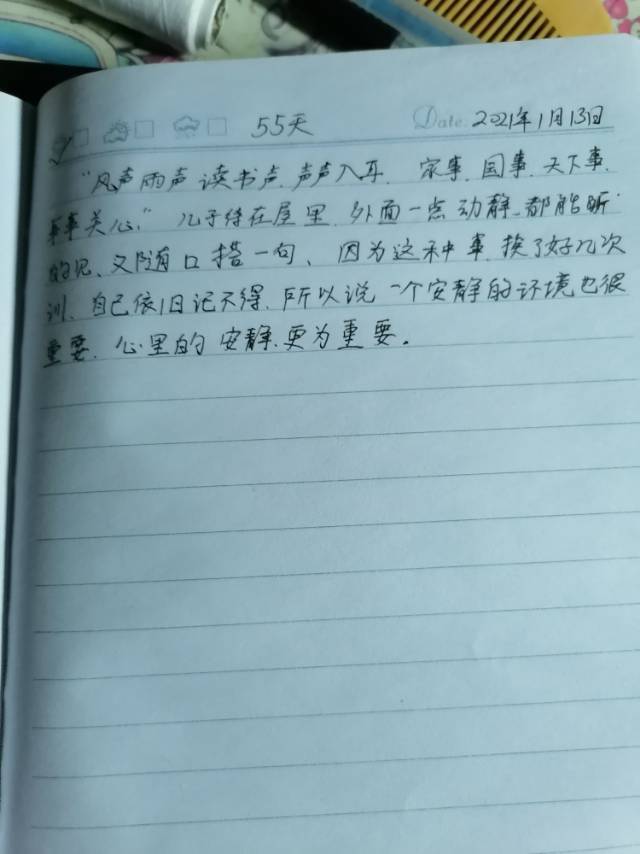 55天 Date: 2021年1月13日
"风声雨声读书声、声声入耳、家事、国事、天下事、
事事关心。"儿子待在屋里、外面一点动静、都能听
的见、又随口搭一句、因为这种事、挨了好几次
训、自己依旧记不得、所以说一个安静的环境也很
重要、心里的安静、更为重要。